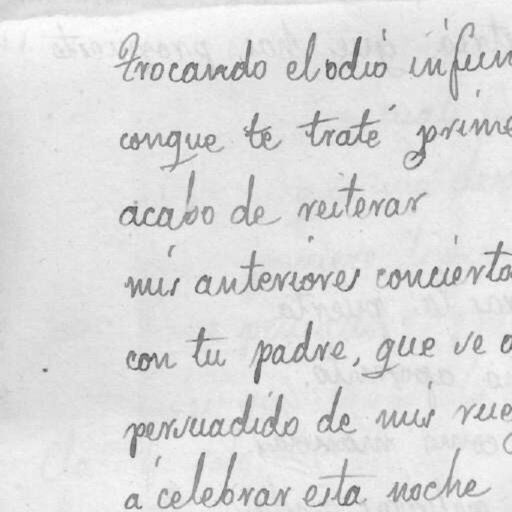 trocando el odio infun
conque te traté prime
acabo de reiterar
mis anteriores concierto
con tu padre, que se a
persuadido de mis rueg
á celebrar esta noche